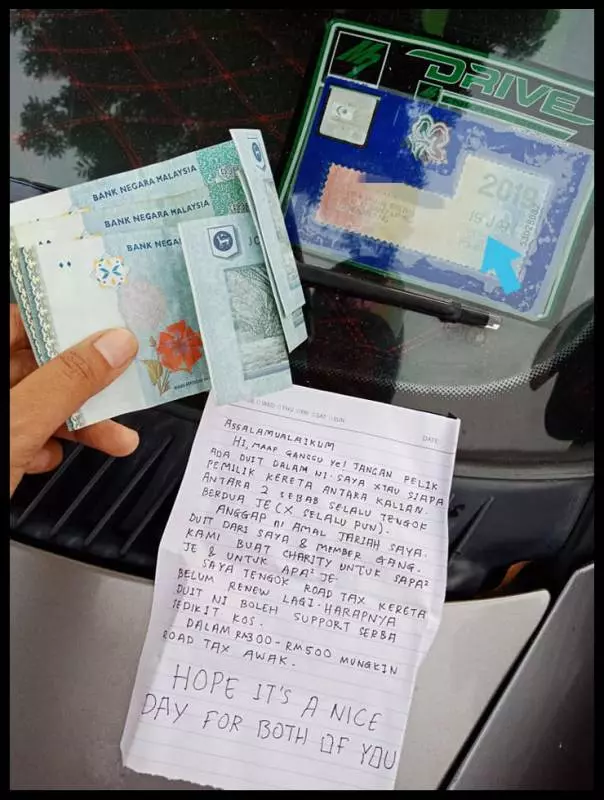 DRIVE
2019
BANK NEGARA MALAYSIA
BANK NEGARA MALAYSIA
BANK NEGARA
DATE:
ASSALAMUALAIKUM
HI, MAAF GANGGU YE! JANGAN PELIK
ADA DUIT DALAM NI. SAYA XTAU SIAPA
PEMILIK KERETA ANTARA KALIAN.
ANTARA 2 SEBAB SELALU TENGOK
BERDUA JE (X SELALU PUN).
ANGGAP NI AMAL JARIAH SAYA.
DUIT DARI SAYA & MEMBER GANG.
KAMI BUAT CHARITY UNTUK SAPA²
JE & UNTUK APA² JE.
SAYA TENGOK ROAD TAX KERETA
BELUM RENEW LAGI. HARAPNYA
DUIT NI BOLEH SUPPORT SERBA
SEDIKIT KOS.
DALAM RM300-RM500 MUNGKIN
ROAD TAX AWAK.
HOPE IT'S A NICE
DAY FOR BOTH OF YOU